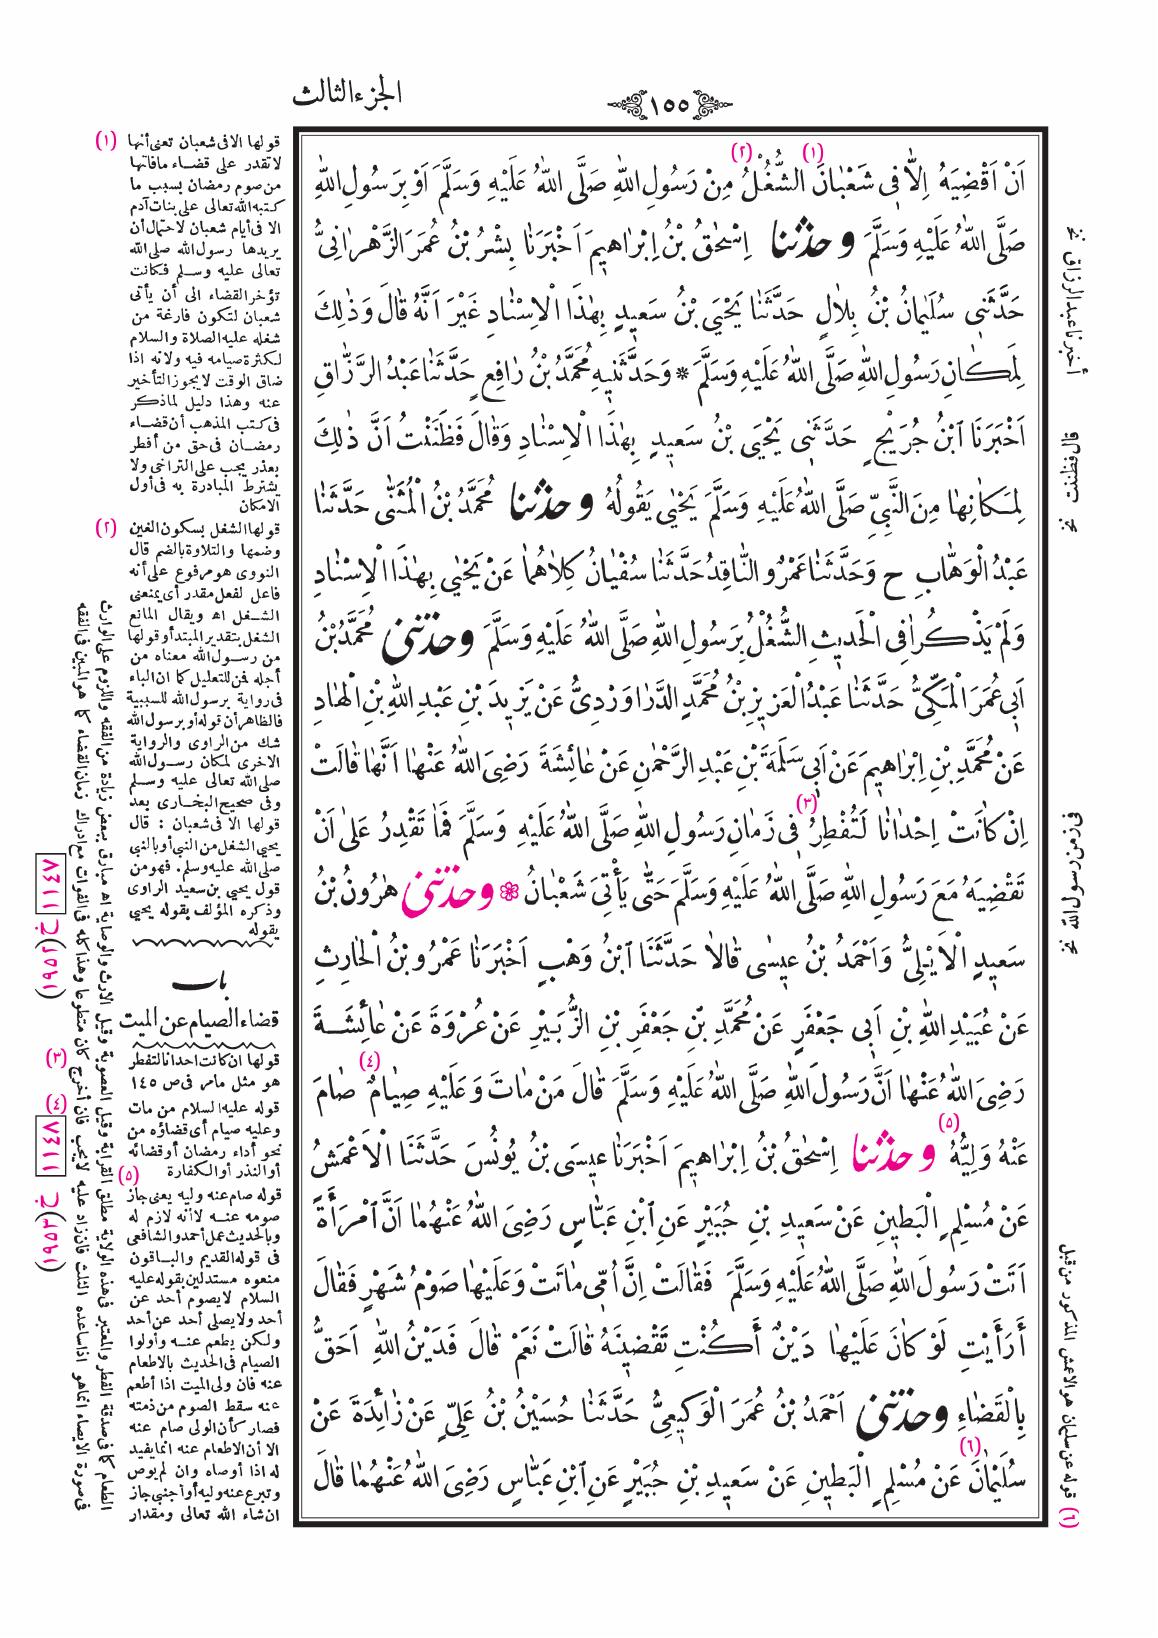 الجزء الثالث
١٥٥
اَنْ اَقْضِيَهُ اِلاَّ فِى شَعْبَانَ (١) الشُّغْلُ (٢) مِنْ رَسُولِ اللهِ صَلَّى اللهُ عَلَيْهِ وَسَلَّمَ اَوْ بِرَسُولِ اللهِ
صَلَّى اللهُ عَلَيْهِ وَسَلَّمَ وحدثنا اِسْحٰقُ بْنُ اِبْرَاهِيمَ اَخْبَرَنَا بِشْرُ بْنُ عُمَرَ الزَّهْرَانِىُّ
حَدَّثَنِى سُلَيْمَانُ بْنُ بِلَالٍ حَدَّثَنَا يَحْيَى بْنُ سَعِيدٍ بِهٰذَا الْاِسْنَادِ غَيْرَ اَنَّهُ قَالَ وَذٰلِكَ
لِمَكَانِ رَسُولِ اللهِ صَلَّى اللهُ عَلَيْهِ وَسَلَّمَ * وَحَدَّثَنِيهِ مُحَمَّدُ بْنُ رَافِعٍ حَدَّثَنَا عَبْدُ الرَّزَّاقِ
اَخْبَرَنَا ابْنُ جُرَيْجٍ حَدَّثَنِى يَحْيَى بْنُ سَعِيدٍ بِهٰذَا الْاِسْنَادِ وَقَالَ فَظَنَنْتُ اَنَّ ذٰلِكَ
لِمَكَانِهَا مِنَ النَّبِىِّ صَلَّى اللهُ عَلَيْهِ وَسَلَّمَ يَحْيٰى يَقُولُهُ وحدثنا مُحَمَّدُ بْنُ الْمُثَنّٰى حَدَّثَنَا
عَبْدُ الْوَهَّابِ ح وَحَدَّثَنَا عَمْرٌو النَّاقِدُ حَدَّثَنَا سُفْيَانُ كِلَاهُمَا عَنْ يَحْيٰى بِهٰذَا الْاِسْنَادِ
وَلَمْ يَذْكُرَا فِى الْحَدِيثِ الشُّغْلُ بِرَسُولِ اللهِ صَلَّى اللهُ عَلَيْهِ وَسَلَّمَ وحدثنى مُحَمَّدُ بْنُ
اَبِى عُمَرَ الْمَكِّىُّ حَدَّثَنَا عَبْدُ الْعَزِيزِ بْنُ مُحَمَّدٍ الدَّرَاوَرْدِىُّ عَنْ يَزِيدَ بْنِ عَبْدِ اللهِ بْنِ الْهَادِ
عَنْ مُحَمَّدِ بْنِ اِبْرَاهِيمَ عَنْ اَبِى سَلَمَةَ بْنِ عَبْدِ الرَّحْمٰنِ عَنْ عَائِشَةَ رَضِىَ اللهُ عَنْهَا اَنَّهَا قَالَتْ
اِنْ كَانَتْ اِحْدَانَا لَتُفْطِرُ (٣) فِى زَمَانِ رَسُولِ اللهِ صَلَّى اللهُ عَلَيْهِ وَسَلَّمَ فَمَا تَقْدِرُ عَلٰى اَنْ
تَقْضِيَهُ مَعَ رَسُولِ اللهِ صَلَّى اللهُ عَلَيْهِ وَسَلَّمَ حَتّٰى يَأْتِىَ شَعْبَانُ وحدثنى هٰرُونُ بْنُ
سَعِيدٍ الْاَيْلِىُّ وَاَحْمَدُ بْنُ عِيسٰى قَالَا حَدَّثَنَا ابْنُ وَهْبٍ اَخْبَرَنَا عَمْرُو بْنُ الْحَارِثِ
عَنْ عُبَيْدِ اللهِ بْنِ اَبِى جَعْفَرٍ عَنْ مُحَمَّدِ بْنِ جَعْفَرِ بْنِ الزُّبَيْرِ عَنْ عُرْوَةَ عَنْ عَائِشَةَ
رَضِىَ اللهُ عَنْهَا اَنَّ رَسُولَ اللهِ صَلَّى اللهُ عَلَيْهِ وَسَلَّمَ قَالَ مَنْ مَاتَ وَعَلَيْهِ صِيَامٌ (٤) صَامَ
عَنْهُ وَلِيُّهُ (٥) وحدثنا اِسْحٰقُ بْنُ اِبْرَاهِيمَ اَخْبَرَنَا عِيسَى بْنُ يُونُسَ حَدَّثَنَا الْاَعْمَشُ
عَنْ مُسْلِمٍ الْبَطِينِ عَنْ سَعِيدِ بْنِ جُبَيْرٍ عَنِ ابْنِ عَبَّاسٍ رَضِىَ اللهُ عَنْهُمَا اَنَّ امْرَأَةً
اَتَتْ رَسُولَ اللهِ صَلَّى اللهُ عَلَيْهِ وَسَلَّمَ فَقَالَتْ اِنَّ اُمِّى مَاتَتْ وَعَلَيْهَا صَوْمُ شَهْرٍ فَقَالَ
أَرَأَيْتِ لَوْ كَانَ عَلَيْهَا دَيْنٌ أَكُنْتِ تَقْضِينَهُ قَالَتْ نَعَمْ قَالَ فَدَيْنُ اللهِ اَحَقُّ
بِالْقَضَاءِ وحدثنى اَحْمَدُ بْنُ عُمَرَ الْوَكِيعِىُّ حَدَّثَنَا حُسَيْنُ بْنُ عَلِىٍّ عَنْ زَائِدَةَ عَنْ
سُلَيْمَانَ (٦) عَنْ مُسْلِمٍ الْبَطِينِ عَنْ سَعِيدِ بْنِ جُبَيْرٍ عَنِ ابْنِ عَبَّاسٍ رَضِىَ اللهُ عَنْهُمَا قَالَ
(١) قولها الا فى شعبان تعنى أنها
لا تقدر على قضاء مافاتها
من صوم رمضان بسبب ما
كتبه الله تعالى على بنات آدم
الا فى أيام شعبان لاحتمال أن
يريدها رسول الله صلى الله
تعالى عليه وسلم فكانت
تؤخر القضاء الى أن يأتى
شعبان لتكون فارغة من
شغله عليه الصلاة والسلام
لكثرة صيامه فيه ولأنه اذا
ضاق الوقت لا يجوز التأخير
عنه وهذا دليل لما ذكر
فى كتب المذهب أن قضاء
رمضان فى حق من أفطر
بعذر يجب على التراخى ولا
يشترط المبادرة به فى أول
الامكان
(٢) قولها الشغل بسكون الغين
وضمها والتلاوة بالضم قال
النووى هو مرفوع على أنه
فاعل لفعل مقدر أى يمنعنى
الشغل اه ويقال المانع
الشغل بتقدير المبتدأ وقولها
من رسول الله معناه من
أجله فمن للتعليل كما ان الباء
فى رواية برسول الله للسببية
فالظاهر أن قوله أو برسول الله
شك من الراوى والرواية
الاخرى لمكان رسول الله
صلى الله تعالى عليه وسلم
وفى صحيح البخارى بعد
قولها الا فى شعبان : قال
يحيى الشغل من النبى أو بالنبى
صلى الله عليه وسلم. فهو من
قول يحيى بن سعيد الراوى
وذكره المؤلف بقوله يحيى
يقوله
باب
قضاء الصيام عن الميت
(٣) قولها ان كانت احدانا لتفطر
هو مثل مامر فى ص ١٤٥
(٤) قوله عليه السلام من مات
وعليه صيام أى قضاؤه من
نحو أداء رمضان أو قضائه
أو النذر أو الكفارة
(٥) قوله صام عنه وليه يعنى جاز
صومه عنه لا أنه لازم له
وبالحديث عمل أحمد والشافعى
فى قوله القديم والباقون
منعوه مستدلين بقوله عليه
السلام لا يصوم أحد عن
أحد ولا يصلى أحد عن أحد
ولكن يطعم عنه وأولوا
الصيام فى الحديث بالاطعام
عنه فان ولى الميت اذا أطعم
عنه سقط الصوم من ذمته
فصار كأن الولى صام عنه
الا أن الاطعام عنه انما يفيد
له اذا أوصاه وان لم يوص
وتبرع عنه وليه أو أجنبى جاز
ان شاء الله تعالى ومقدار
الطعام كما فى صدقة الفطر والمعتبر فى هذه الولاية مطلق القرابة وقيل العصوبة وقيل الارث والوصاية اه مبارق ببعض زيادة من الفقه واللزوم على الوارث
فى صورة الايصاء انما هو اذا ساعده الثلث فان زاد عليه لا يجب فان أخرج كان متطوعا وهذا كله فى الفوات مع ادراك زمان القضاء كما هو المبين فى الفقه
١١٤٨
ح (١٥٦١)
١١٤٧
ح (١٥٦٣)
أخبرنا عبدالرزاق نخ
قال فظننت نخ
فى زمن رسول الله نخ
(٦) قوله عن سليمان هو الاعمش المذكور من قبل